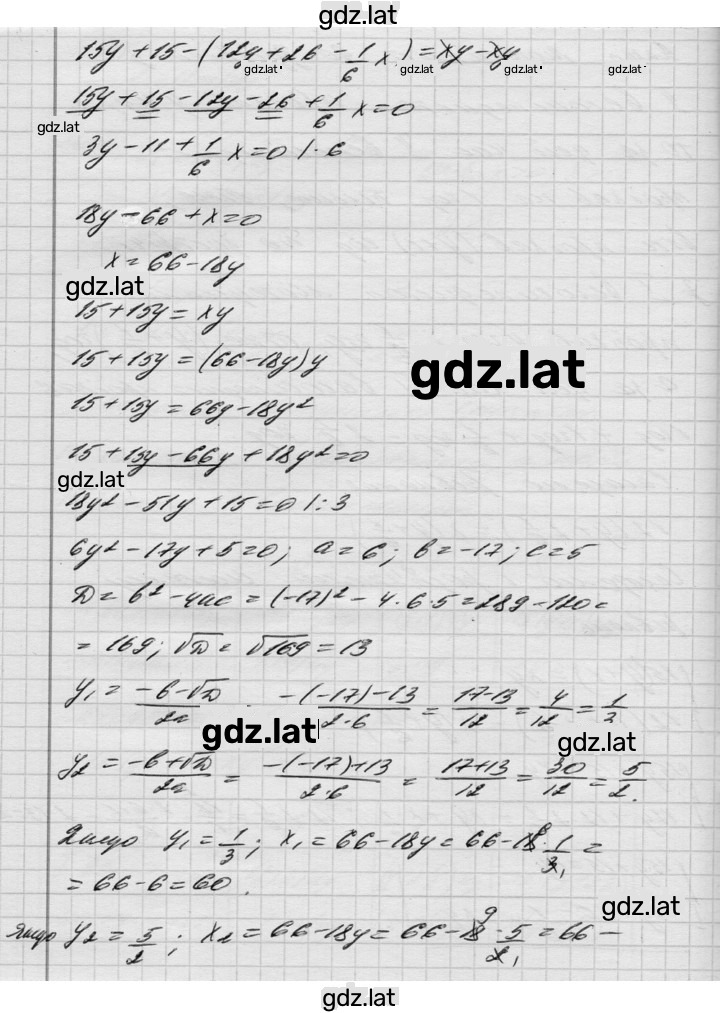 gdz.lat
15y + 15 - (12y + 26 - 1/6 x) = xy - xy
gdz.lat gdz.lat gdz.lat gdz.lat
15y + 15 - 12y - 26 + 1/6 x = 0
gdz.lat
3y - 11 + 1/6 x = 0 | · 6
18y - 66 + x = 0
x = 66 - 18y
gdz.lat
15 + 15y = xy
15 + 15y = (66 - 18y) y
gdz.lat
15 + 15y = 66y - 18y²
15 + 15y - 66y + 18y² = 0
gdz.lat
18y² - 51y + 15 = 0 | : 3
6y² - 17y + 5 = 0; a = 6; b = -17; c = 5
D = b² - 4ac = (-17)² - 4 · 6 · 5 = 289 - 120 =
= 169; √D = √169 = 13
y₁ = (-b - √D)/2a = (-(-17) - 13)/(2 · 6) = (17 - 13)/12 = 4/12 = 1/3
gdz.lat gdz.lat
y₂ = (-b + √D)/2a = (-(-17) + 13)/(2 · 6) = (17 + 13)/12 = 30/12 = 5/2.
Якщо y₁ = 1/3; x₁ = 66 - 18y = 66 - 18 · 1/3 =
= 66 - 6 = 60.
gdz.lat
якщо y₂ = 5/2; x₂ = 66 - 18y = 66 - 18 · 5/2 = 66 -
gdz.lat